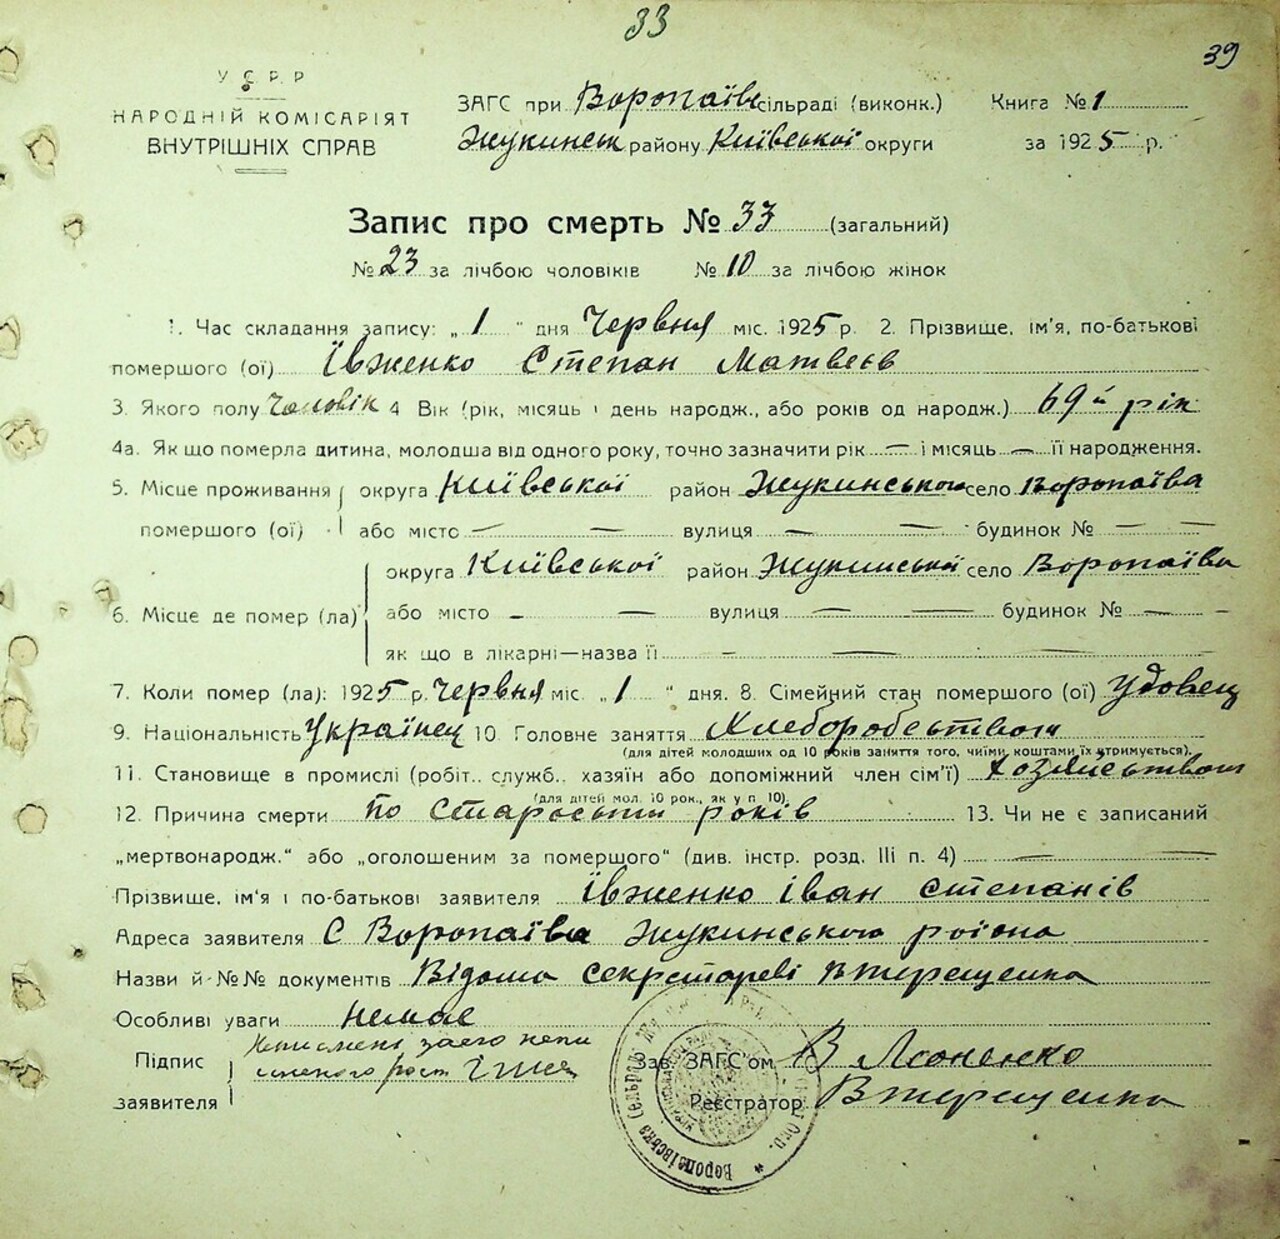 33
39
У С Р Р
НАРОДНІЙ КОМІСАРІЯТ
ВНУТРІШНІХ СПРАВ
ЗАГС при Воропаївс сільраді (виконк.) Книга № 1
Жукинськ району Київської округи за 1925 р.
Запис про смерть № 33 (загальний)
№ 23 за лічбою чоловіків № 10 за лічбою жінок
1. Час складання запису: „ 1 " дня Червня міс. 1925 р. 2. Прізвище, ім'я, по-батькові
помершого (ої) Ївженко Степан Матвеєв
3. Якого полу Чоловік 4 Вік (рік, місяць і день народж., або років од народж.) 69й рік
4а. Як що померла дитина, молодша від одного року, точно зазначити рік — і місяць — її народження.
5. Місце проживання округа Київської район Жукинського село Воропаїва
помершого (ої) або місто — — вулиця — — будинок № — —
округа Київської район Жукинської село Воропаїва
6. Місце де помер (ла) або місто — — вулиця — — будинок № — —
як що в лікарні—назва її — — — —
7. Коли помер (ла): 1925 р. Червня міс. „ 1 " дня. 8. Сімейний стан помершого (ої) Удовец
9. Національність Українец 10. Головне заняття Хлеборобством
(для дітей молодших од 10 років заняття того, чиїми коштами їх утримується).
11. Становище в промислі (робіт.. служб.. хазяїн або допоміжний член сім'ї) хозяйством
(для дітей мол. 10 рок., як у п. 10)
12. Причина смерти по старости років 13. Чи не є записаний
„мертвонародж." або „оголошеним за помершого" (див. інстр. розд. III п. 4) — —
Прізвище, ім'я і по-батькові заявителя Ївженко Іван Степанів
Адреса заявителя С Воропаїва Жукинського района
Назви й №№ документів Відома секретареві Втерещенка
Особливі уваги немає
Підпис
заявителя
Зав. ЗАГС'ом В Лсоненко
Реєстратор Втерещенка